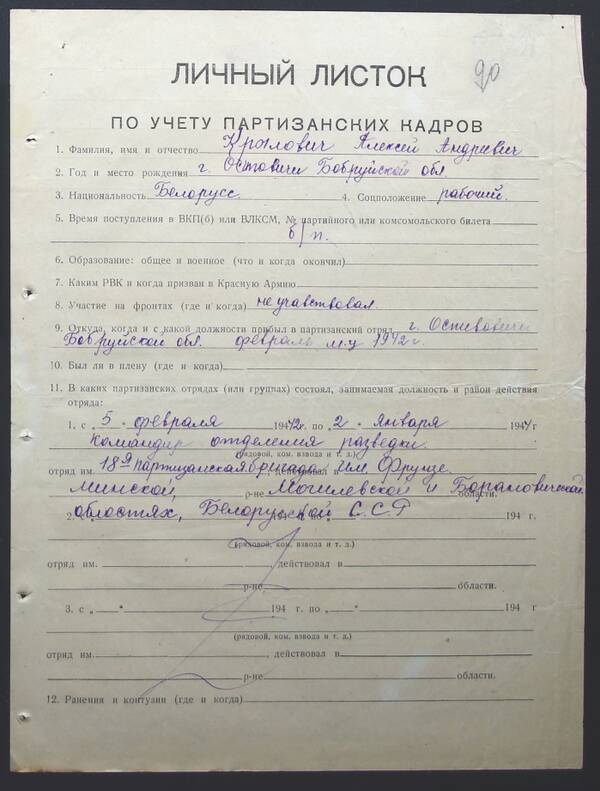 ЛИЧНЫЙ ЛИСТОК
90
ПО УЧЕТУ ПАРТИЗАНСКИХ КАДРОВ
1. Фамилия, имя и отчество Крылович Алексей Андриевич
2. Год и место рождения г. Остовичи Бобруйской обл
3. Национальность Белорусс. 4. Соцположение рабочий.
5. Время поступления в ВКП(б) или ВЛКСМ, № партийного или комсомольского билета
б/п.
6. Образование: общее и военное (что и когда окончил)
7. Каким РВК и когда призван в Красную Армию
8. Участие на фронтах (где и когда) не учавствовал
9. Откуда, когда и с какой должности прибыл в партизанский отряд г.
Бобруйской обл. февраль м-ц 1942 г.
10. Был ли в плену (где и когда)
11. В каких партизанских отрядах (или группах) состоял, занимаемая должность и район действия
отряда:
1. с „5" февраля 1942 г. по „2" января 1944 г
командир отделения разведки.
(рядовой, ком. взвода и т. д.)
отряд им. 18я партизанская бригада им. Фрунзе. действовал в
Минской, р-не Могилевской и Барановической
областях, Белорусской С.С.Р
2. 194 г
(рядовой, ком. взвода и т. д.)
отряд им. действовал в
р-не области.
3. с „ " 194 г. по „ " 194 г
(рядовой, ком. взвода и т. д.)
отряд им. , действовал в
р-не области.
12. Ранения и контузии (где и когда)